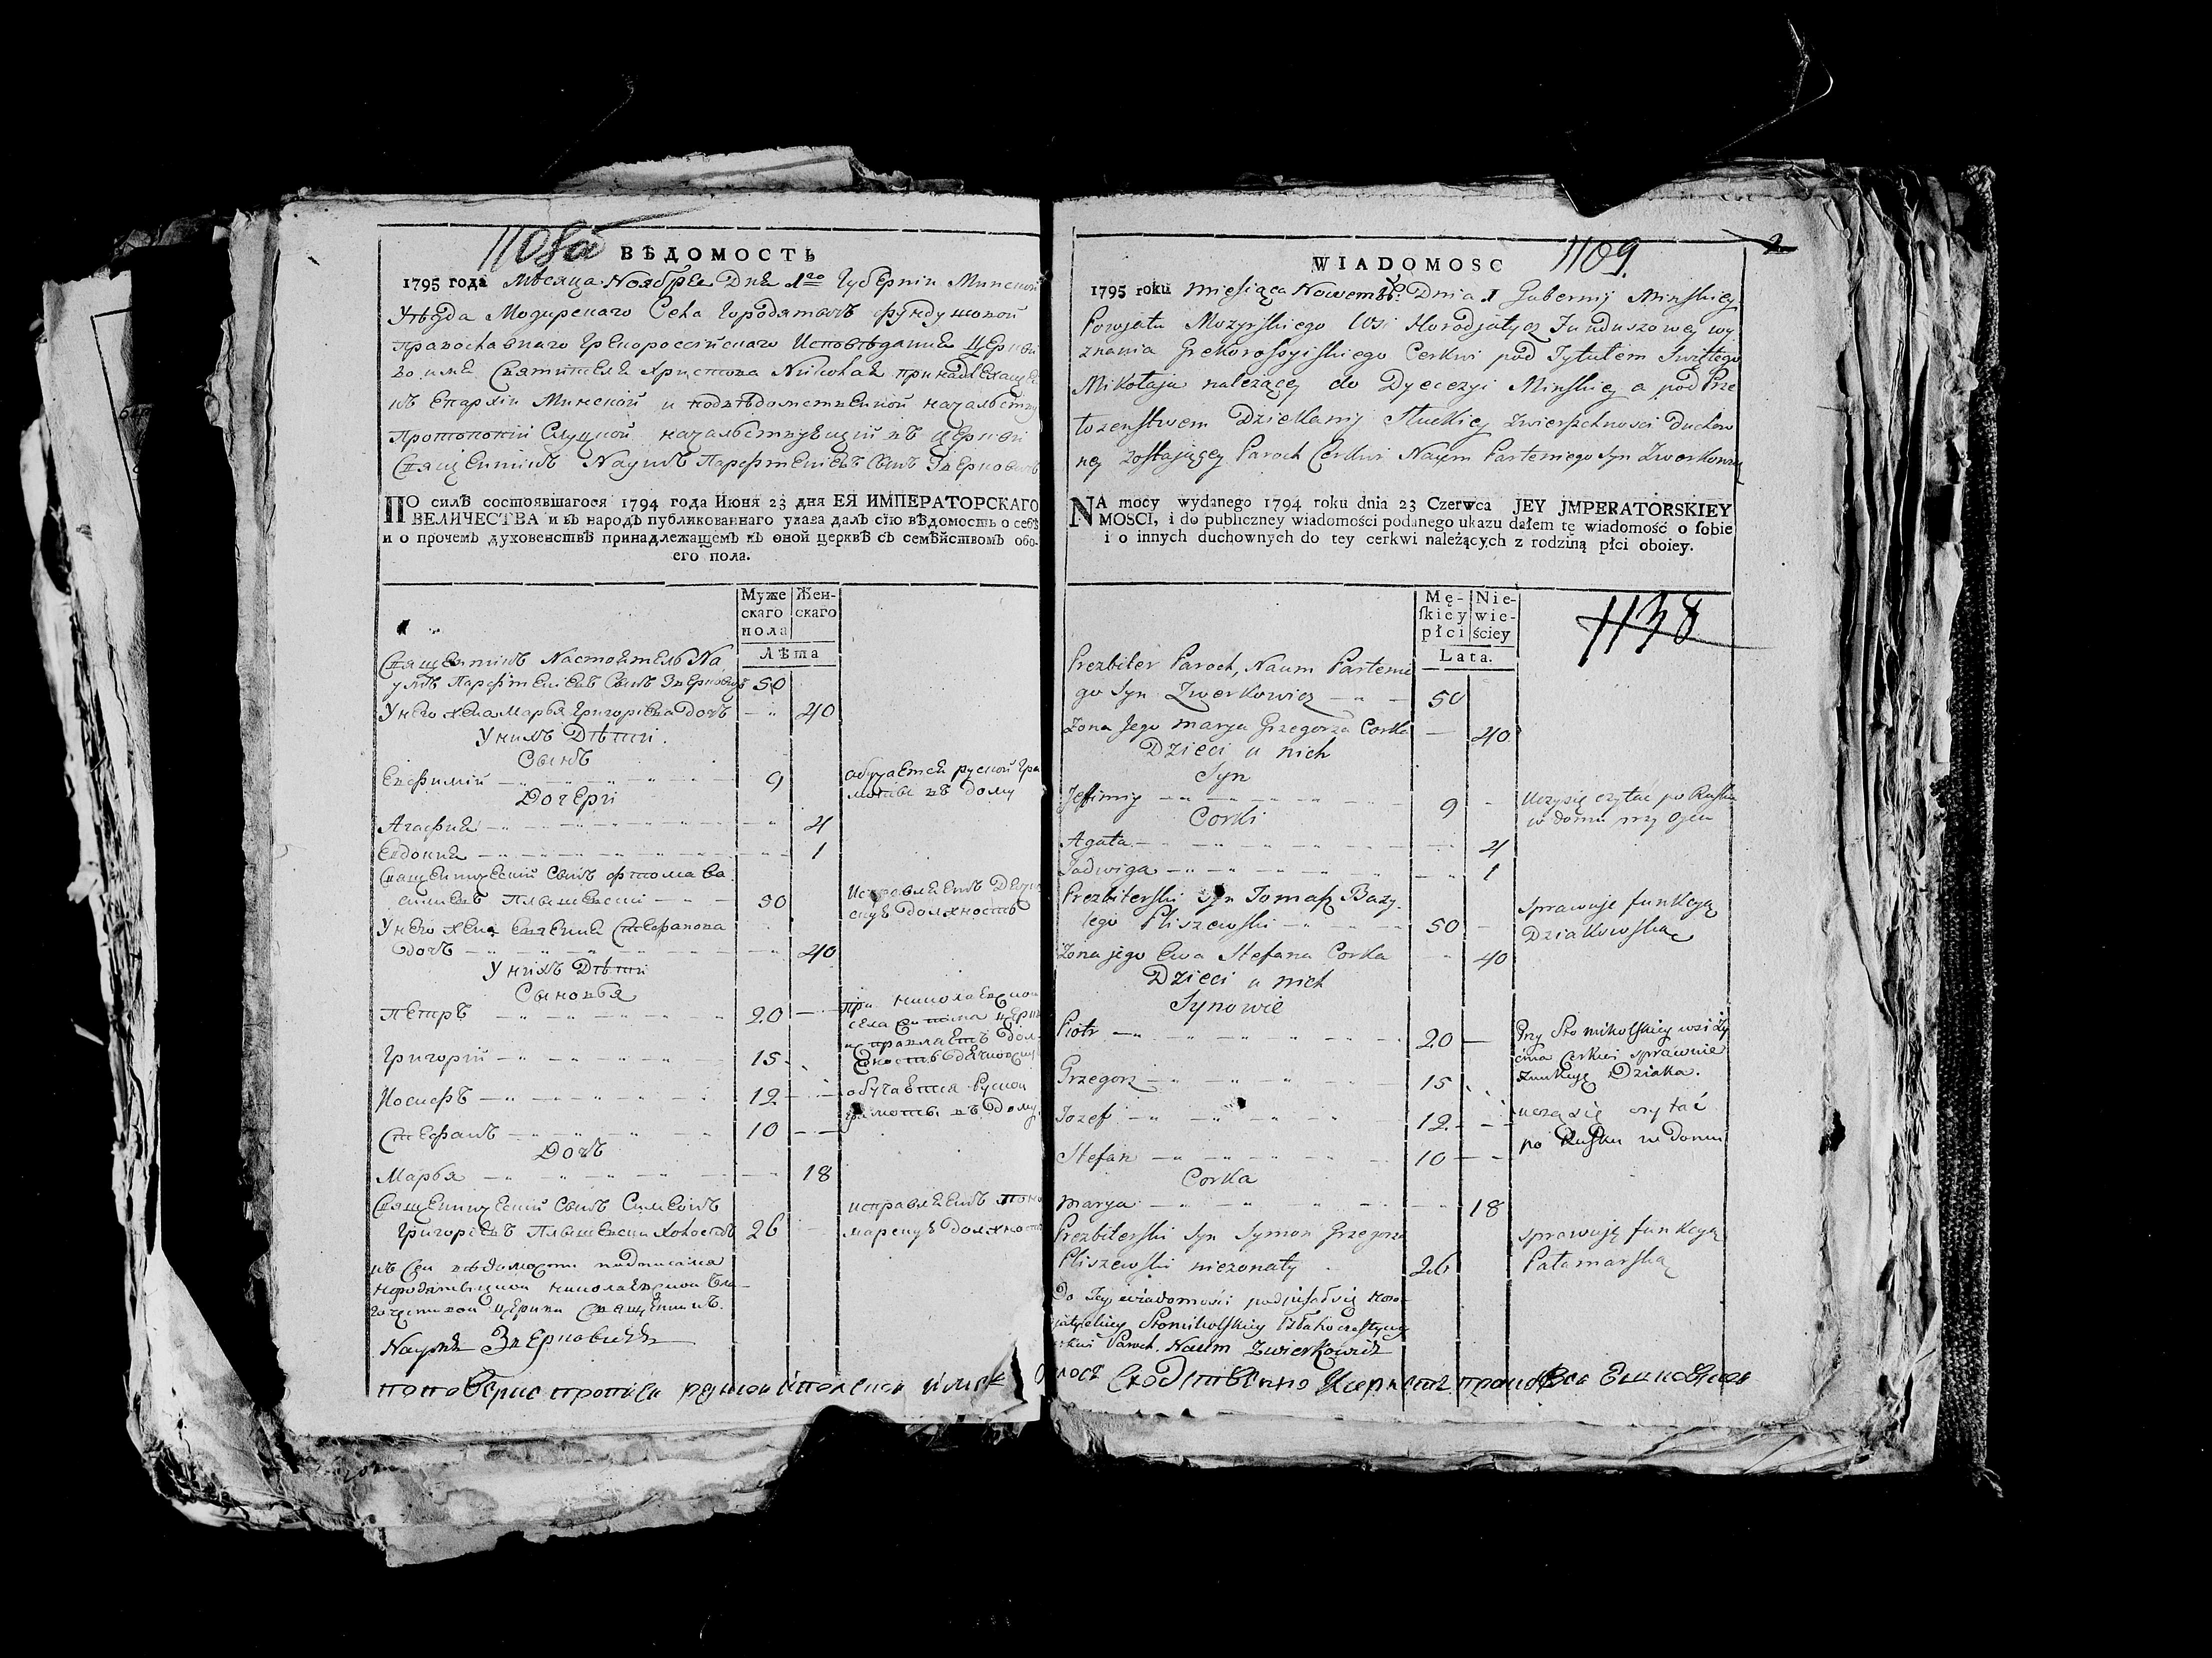 1108а
ВѢДОМОСТЬ
1795 года Мѣсяца Ноября Дня 1го Губерніи Минской
Уѣзда Мозирскаго Села Городятичь фундушовой
Православнаго Грекороссійскаго Исповѣданія Церкви
во имя Святителя Христова Николая принадлежащей
къ Епархіи Минской и подвѣдомственной начальству
Протопопіи Слуцкой начальствующій въ церкви
Священникъ Наумъ Парфтеніевъ Сынъ Зверковичь
ПО силѣ состоявшагося 1794 года Июня 23 дня ЕЯ ИМПЕРАТОРСКАГО
ВЕЛИЧЕСТВА и въ народъ публикованнаго указа далъ сїю вѣдомость о себѣ
и о прочемъ духовенствѣ принадлежащемъ къ оной церквѣ съ семѣйствомъ обо-
его пола.
Муже скаго пола
Жен- скаго
Лѣта
Священникъ Настоятель На
умъ Парфтеніевъ Сынъ Зверковичъ 50
У него жена Марья Григоріева Дочь 40
У нихъ Дѣти.
Сынъ
Евфимій 9 обучается руской гра
моты въ дому
Дочери
Агафия 4
Евдокия 1
Священническій Сынъ фтома Ва
силиевъ Плышевскій 50 Исправляетъ Дьячко
скую должность
У него жена Евгения Стефанова
дочь 40
У нихъ Дѣти
Сыновья
Петръ 20 при николаевской
села церкви
исправляетъ дол
Григорій 15
Иосифъ 12 обучаются Руской
грамоты въ Дому
Стефанъ 10
Дочь
Марья 18
Священническій Сынъ Симеонъ исправляетъ поно
Григоріевъ Плышевски холостъ 26 марскую должность
къ сей вѣдомости подписался
городятицкой николаевской бла
гочестивой церкви священникъ
Наумъ Зверковичъ
1109
2
WIADOMOSC
1795 roku Miesiąca Nowembr: Dnia 1 Gubernij Minskiey
Powjatu Mozyrskiego Wsi Horodjatycz Funduszowey wy
znania Grekorossyiskiego Cerkwi pod Tytułem Swiętego
Mikołaja należącey do Dyecezyi Minskiey a pod Prze
łozenstwem Dziekanij Słuckiey Zwierzchnosci Duchow
ney zostającey Paroch Cerkwi Naum Parteniego Syn Zwerkowicz
NA mocy wydanego 1794 roku dnia 23 Czerwca JEY JMPERATORSKIEY
MOSCI, i do publiczney wiadomości podanego ukazu dałem tę wiadomość o sobie
i o innych duchownych do tey cerkwi należących z rodziną płci oboiey.
Mę- skiey płci
Nie- wie- ściey
Lata.
1138
Prezbiter Paroch, Naum Partenie
go Syn Zwerkowicz 50
Zona Jego Marya Grzegorza Corka 40
Dzieci u nich
Syn
Jefimiy 9 Uczy się czytac po Rusku
w domu przy Ojcu
Corki
Agata 4
Jadwiga 1
Prezbiterski Syn Tomasz Bazy-
lego Pliszewski 50 Sprawuje funkcyą
Dziakowską
Zona jego Ewa Stefana Corka 40
Dzieci u nich
Synowie
Piotr 20 Przy Sto Mikolskiey wsi
Cerkwi sprawuie
Funkcyę Dziaka.
Grzegorz 15
Jozef 12 uczą się czytać
po Rusku w Domu
Stefan 10
Corka
Marya 18
Prezbiterski Syn Symon Grzegorza sprawuję funkcyą
Pliszewski niezonaty 26 Pałamarską
Do Tey wiadomości podpisał się Horo
Stomikolskiey
Paroch. Naum Zwierkowicz